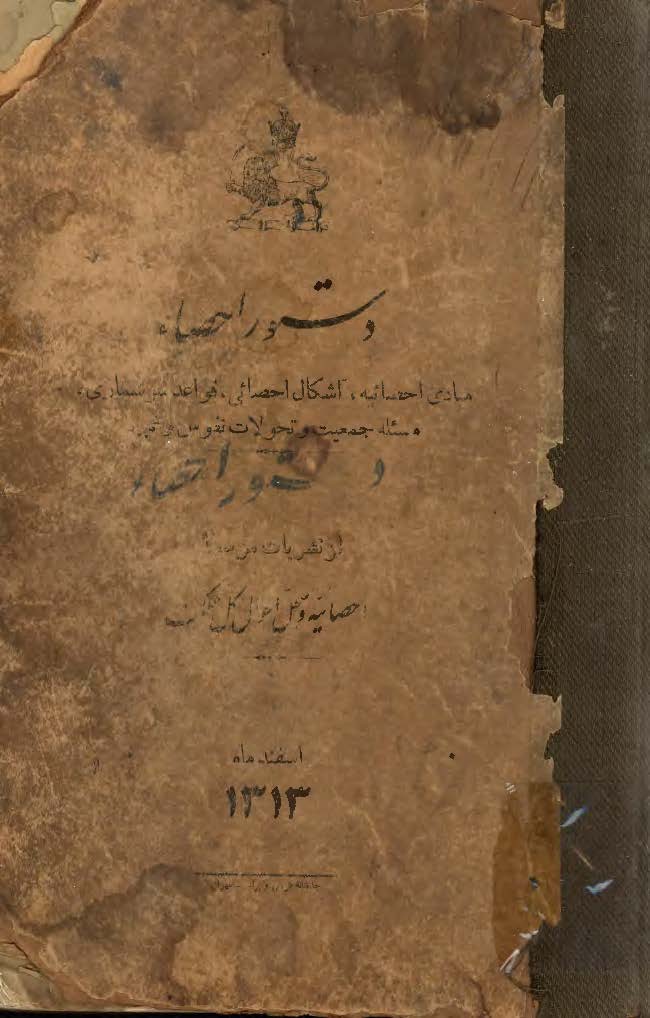 دستور احصاء
مبادی احصائیه، اشکال احصائی، قواعد سرشماری،
مسئله جمعیت و تحولات نفوس و غیره
دستور احصاء
از نشریات
احصائیه و ثبت احوال کل مملکت
اسفند ماه
۱۳۱۳